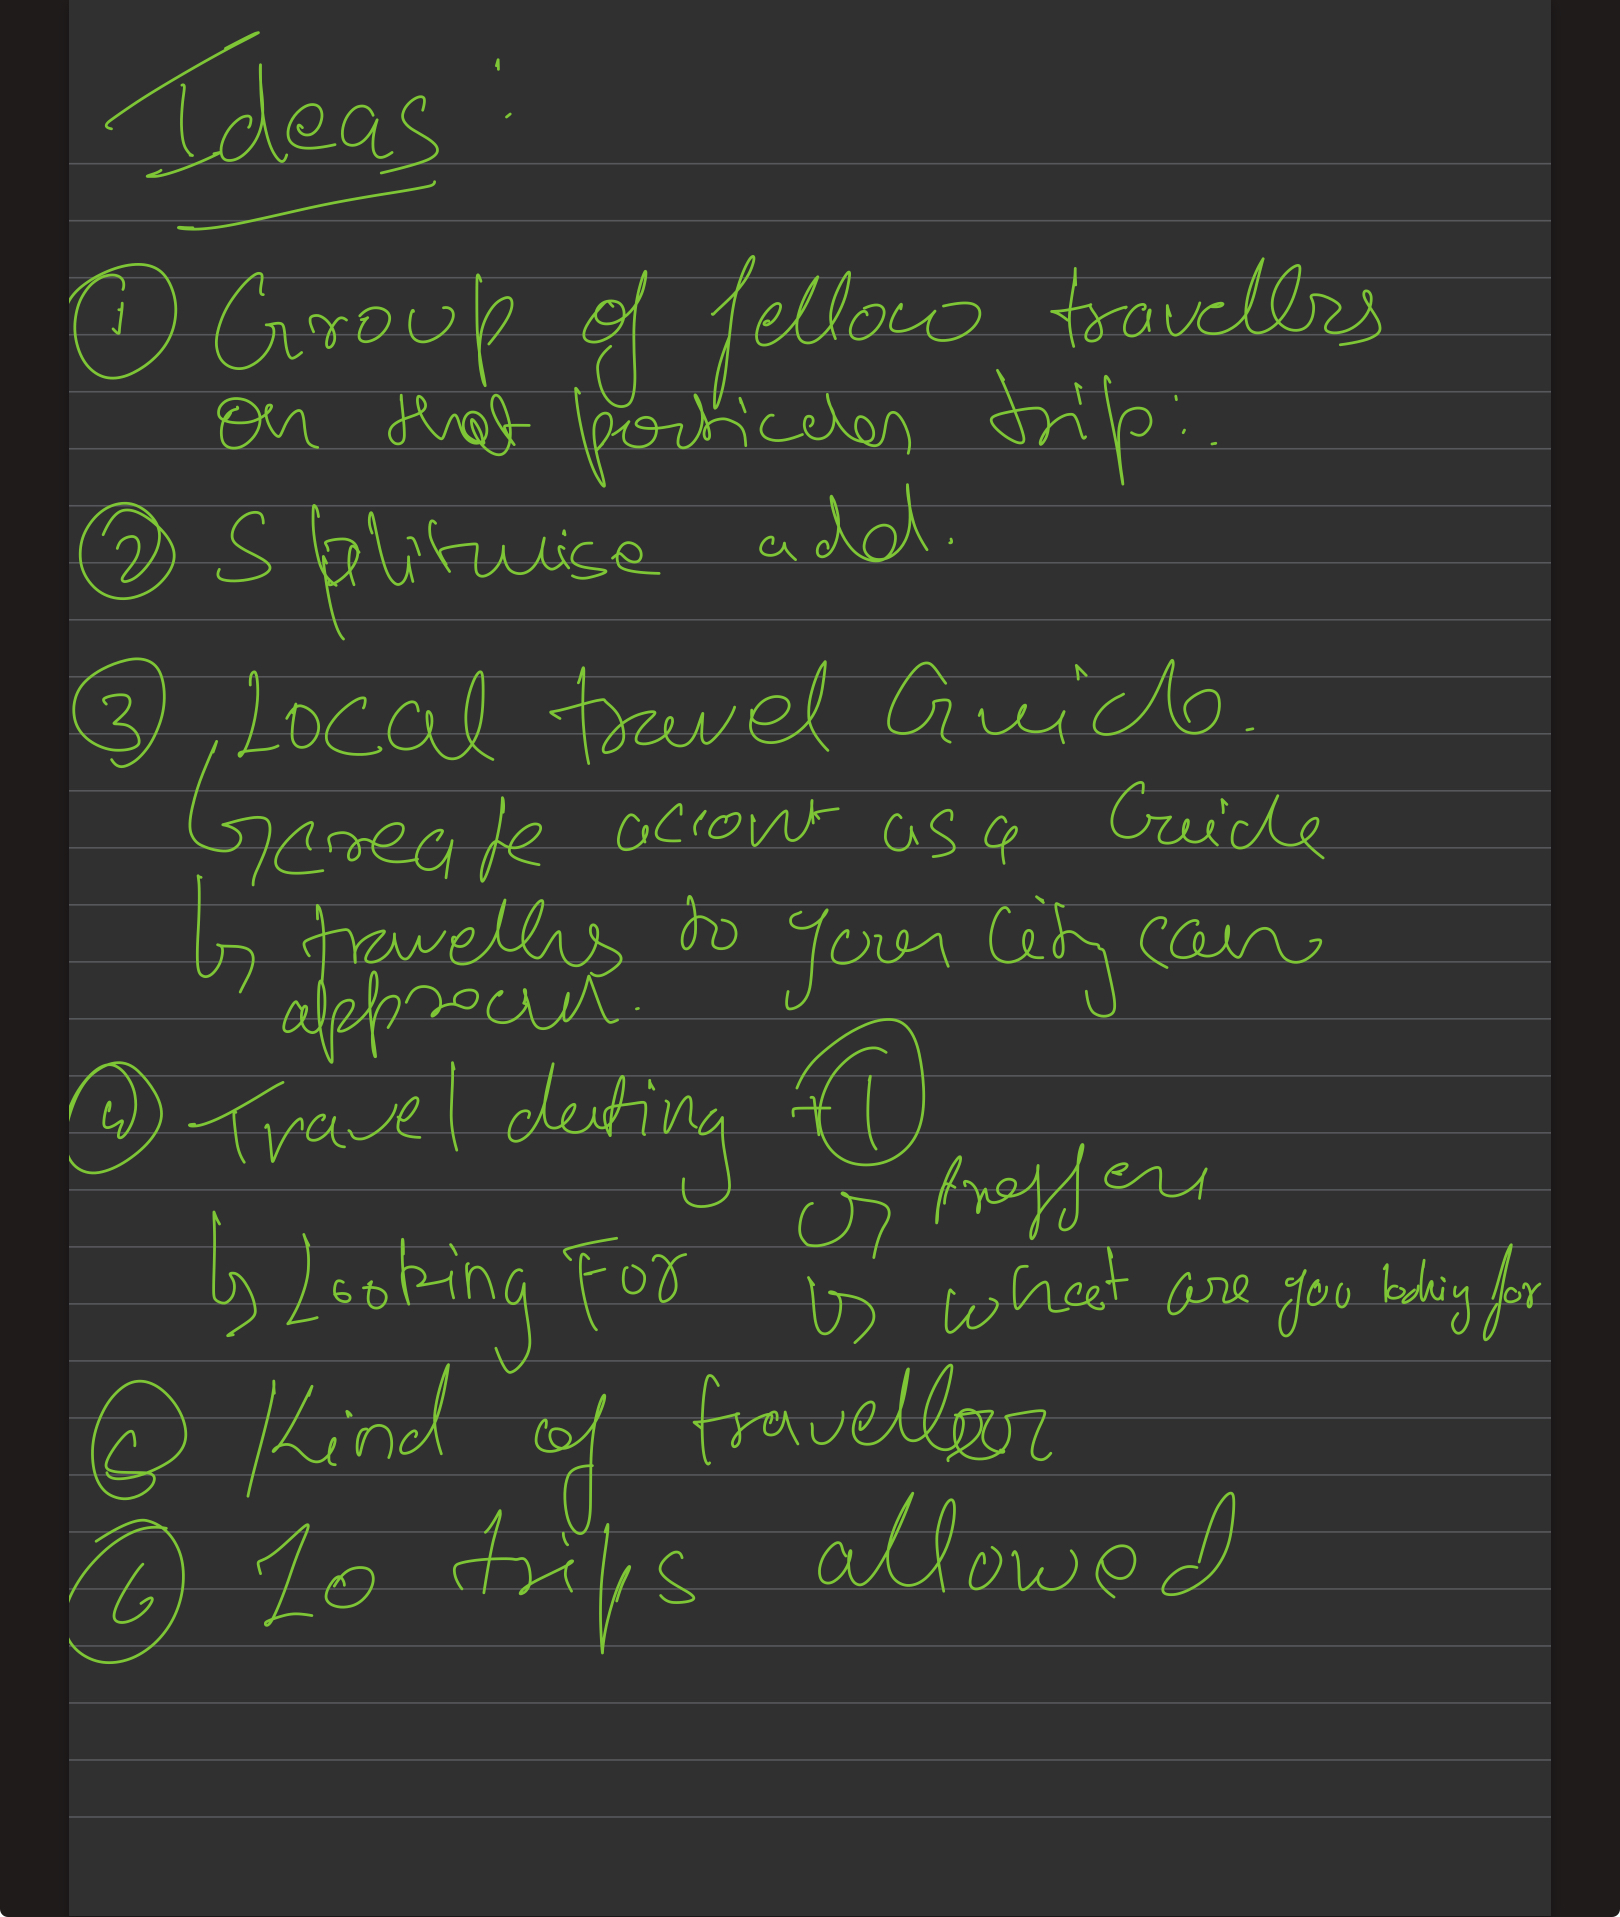 Ideas:
① Group of fellow travellers
on that particular trip.
② Splitwise add.
③ Local travel Guide.
↳ create account as a Guide
↳ travellers to your city can
approach.
④ Travel dating + ①
↳ Looking For
↳ what are you looking for
⑤ Kind of traveller
⑥ 20 trips allowed